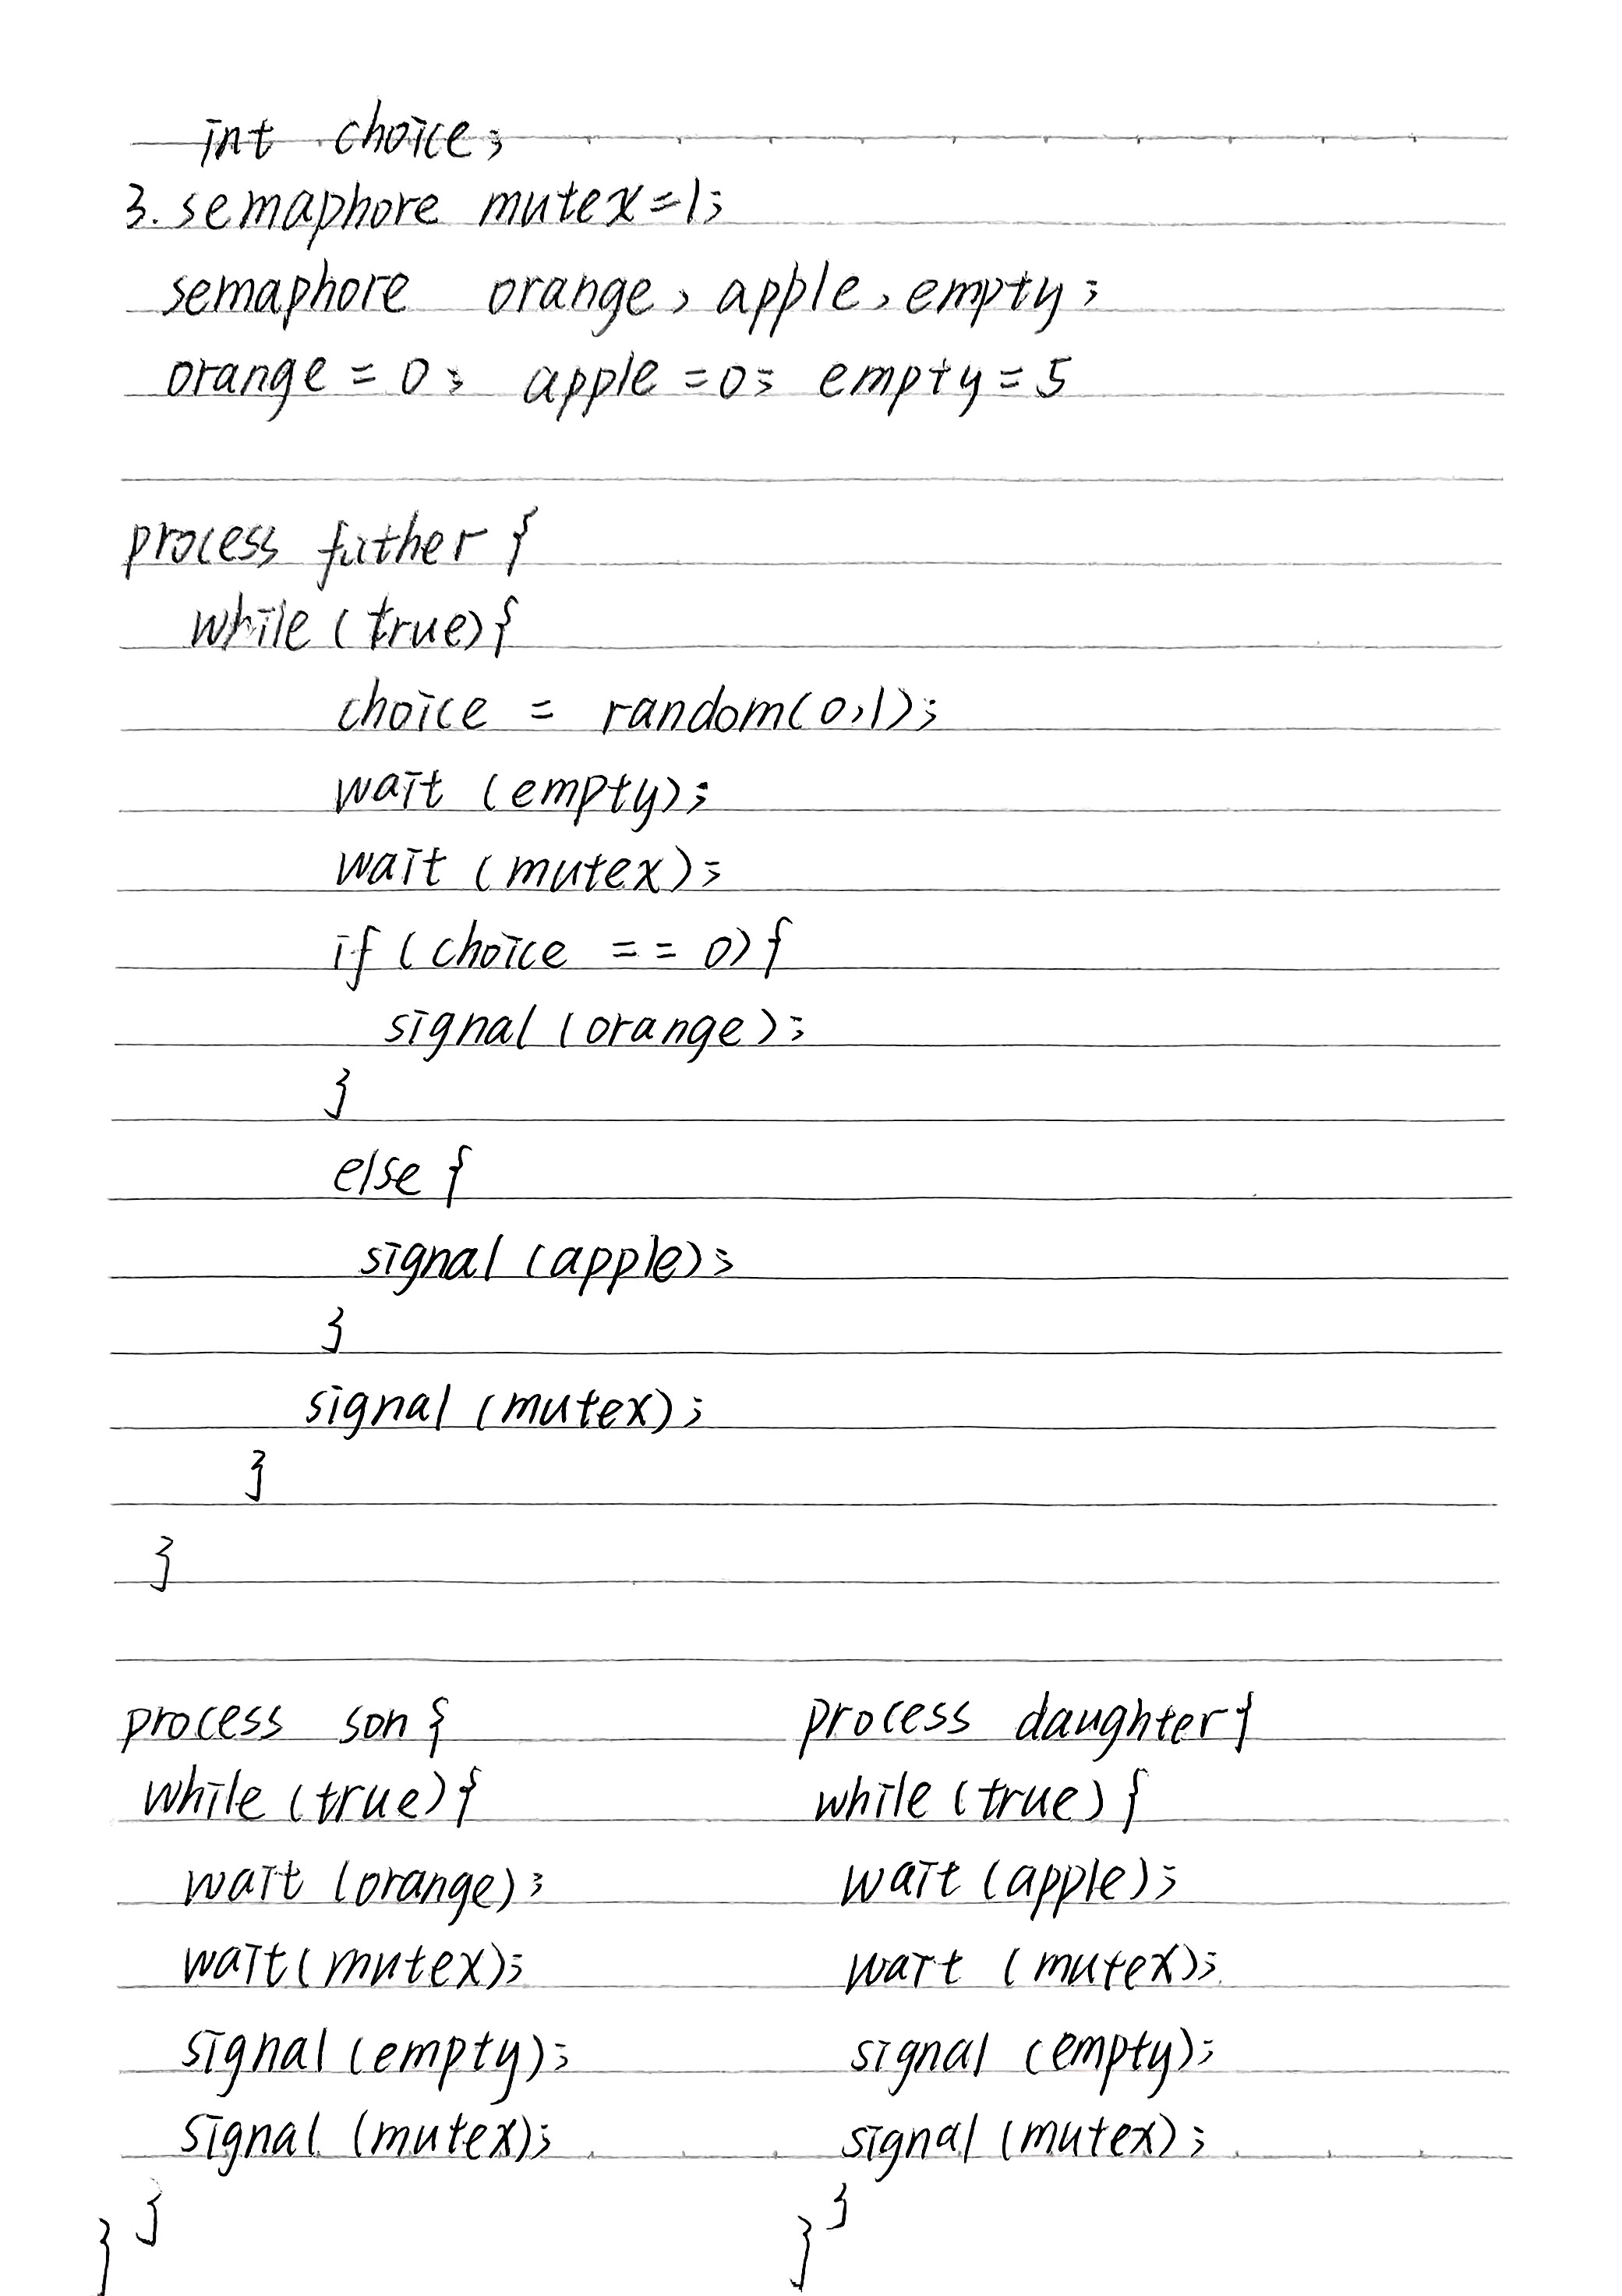 int choice;
3. semaphore mutex=1;
semaphore orange, apple, empty;
orange = 0; apple = 0; empty = 5
process father {
while (true) {
choice = random(0,1);
wait (empty);
wait (mutex);
if (choice == 0) {
signal (orange);
}
else {
signal (apple);
}
signal (mutex);
}
}
process son {
while (true) {
wait (orange);
wait (mutex);
signal (empty);
signal (mutex);
}
}
process daughter {
while (true) {
wait (apple);
wait (mutex);
signal (empty);
signal (mutex);
}
}